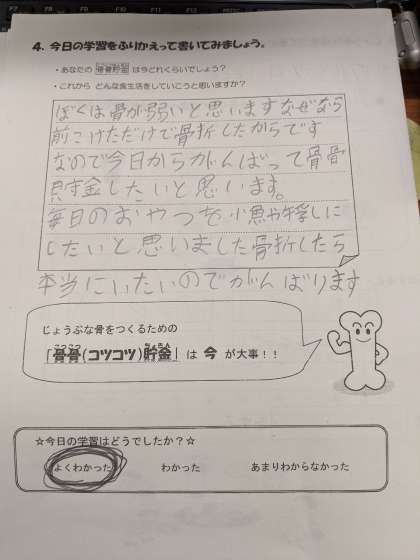 4. 今日の学習をふりかえって書いてみましょう。
・あなたの 骨骨貯金 は今どれくらいでしょう?
・これから どんな食生活をしていこうと思いますか?
ぼくは骨が弱いと思いますなぜなら
前こけただけで骨折したからです
なので今日からがんばって骨骨
貯金したいと思います。
毎日のおやつを小魚や牛乳に
したいと思いました骨折したら
本当にいたいのでがんばります
じょうぶな骨をつくるための
「骨骨(コツコツ)貯金」は 今 が大事!!
☆今日の学習はどうでしたか?☆
よくわかった わかった あまりわからなかった